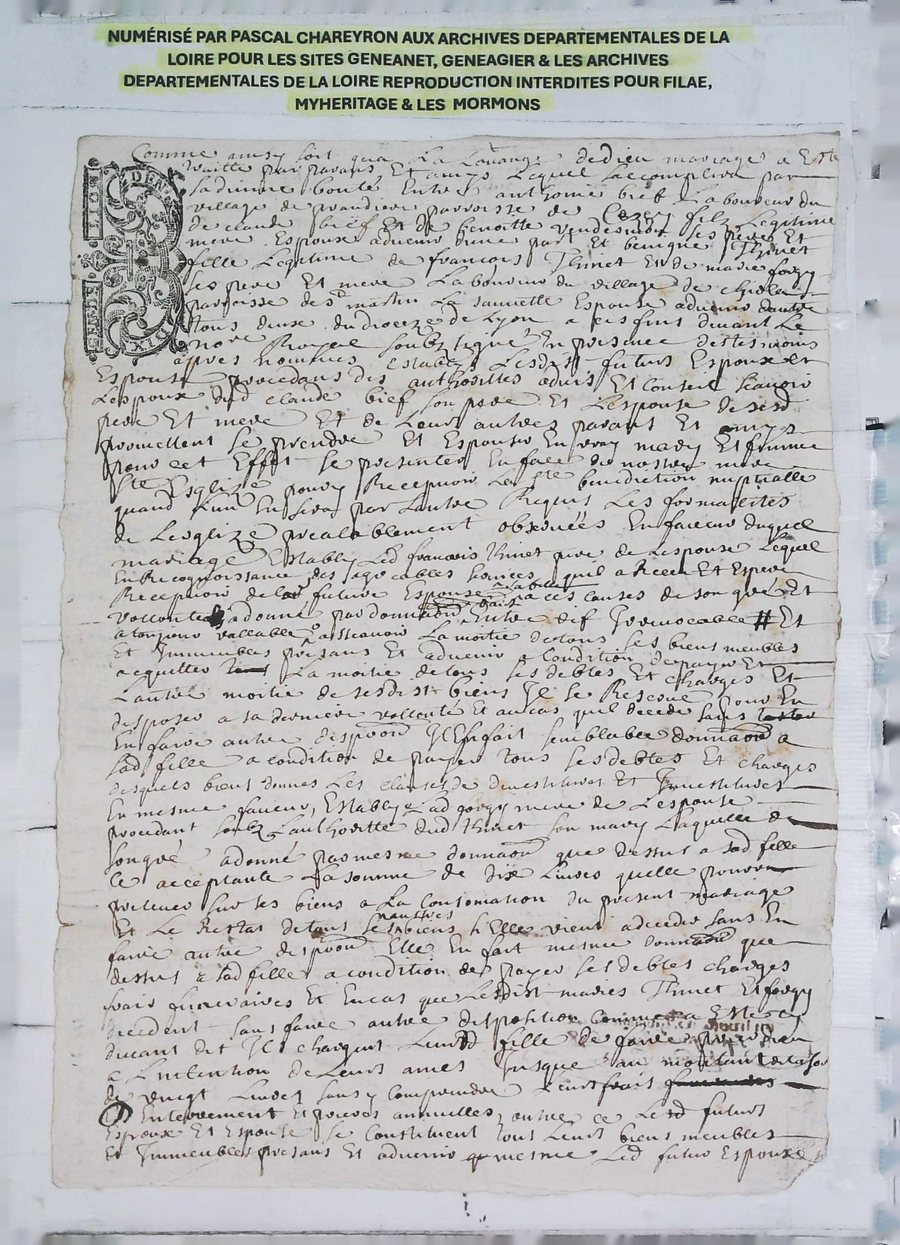 NUMÉRISÉ PAR PASCAL CHAREYRON AUX ARCHIVES DEPARTEMENTALES DE LA
LOIRE POUR LES SITES GENEANET, GENEAGIER & LES ARCHIVES
DEPARTEMENTALES DE LA LOIRE REPRODUCTION INTERDITES POUR FILAE,
MYHERITAGE & LES MORMONS
Comme ainsy soit qua La Louange de dieu mariage a Esté
traitté par parans Et amys Lequel saccomplira par
sa divine bonté Entre anthoine bief Laboureur du
village de parroisse de filz Legitime
de claude bief Et de benoitte ses pere Et
mere Espoux advenir dune part Et benigne Thinet
fille Legitime de francois Thinet Et de marie
ses pere Et mere Laboureur du village de
parroisse de st martin La sauvetté Espouse advenir dautre
tous deux du dioceze de Lyon a ces fins devant Le
nore Royal soubzsigné En presence des tesmoins
appres nommés Establis Lesdist futurs Espoux Et
Espouse procedans des authorittés advis Et Conseil scavoir
Lespoux dud claude bief son pere Et Lespouse de sesd
pere Et mere Et de Leurs autres parans Et amys
promettent se prendre Et Espouser En vray mary Et femme
pour cet Effet se presenter En face de nostre mere
ste Esglize pour y Recepvoir La ste benediction nuptialle
quand Lun En sera par Lautre Requis Les formalités
de Lesglize prealablement observées En faveur duquel
mariage Establi Led francois Thinet pere de Lespouse Lequel
En Recognoissance des agreables services quil a Receu Et Espere
Recepvoir de lad future Espouse sa fille
par ces causes de son gre Et
vollonté a donné par donnaon Entre vif Irrevocable # Et
a toujour vallable a scavoir La moitié de tous ses biens meubles
Et Immeubles presans Et advenir a Condition de payer Et
acquitter La moitié de tous ses debtes Et charges Et
Lautre moitié de sesdist biens Il se Reserve pour En
disposer a sa derniere vollonté Et au cas quil decede sans
En faire autre disposon Il En fait semblable donnaon a
sad fille a condition de payer tous ses debtes Et charges
desquels biens donnés Les clauses de devestitures Et Investitures
En mesme faveur, Establye Lad mere de Lespouse
procedant soubz Lauthoritté dud thinet son mary Laquelle de
son gré a donné par mesme donnaon que dessus a sad fille
ce acceptante La somme de dix Livres quelle pourra
prelever sur ses biens a La Consomation du present mariage
Et Le Restat de tous ses autres
biens sy Elle vient a deceder sans En
faire autre disposon Elle En fait mesme donnaon que
dessus a sad fille a condition de payer ses debtes charges
frais funeraires Et En cas que Lesdist mariés Thinet Et
decedent sans faire autre disposition comme a Esté cy
devant dit Il chargent Leurd fille de faire prier dieu
a Lintention de Leurs ames jusque au montant de la so
de vingt Livres sans y Comprendre Leurs frais
Enterrement Et prieres annuelles, outre ce Lesd futurs
Espoux Et Espouse se Constituent tous Leurs biens meubles
Et Immeubles presans Et advenir mesme Led futur Espoux